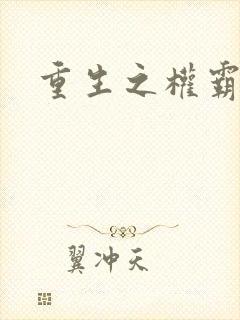 重生之權霸
翼冲天